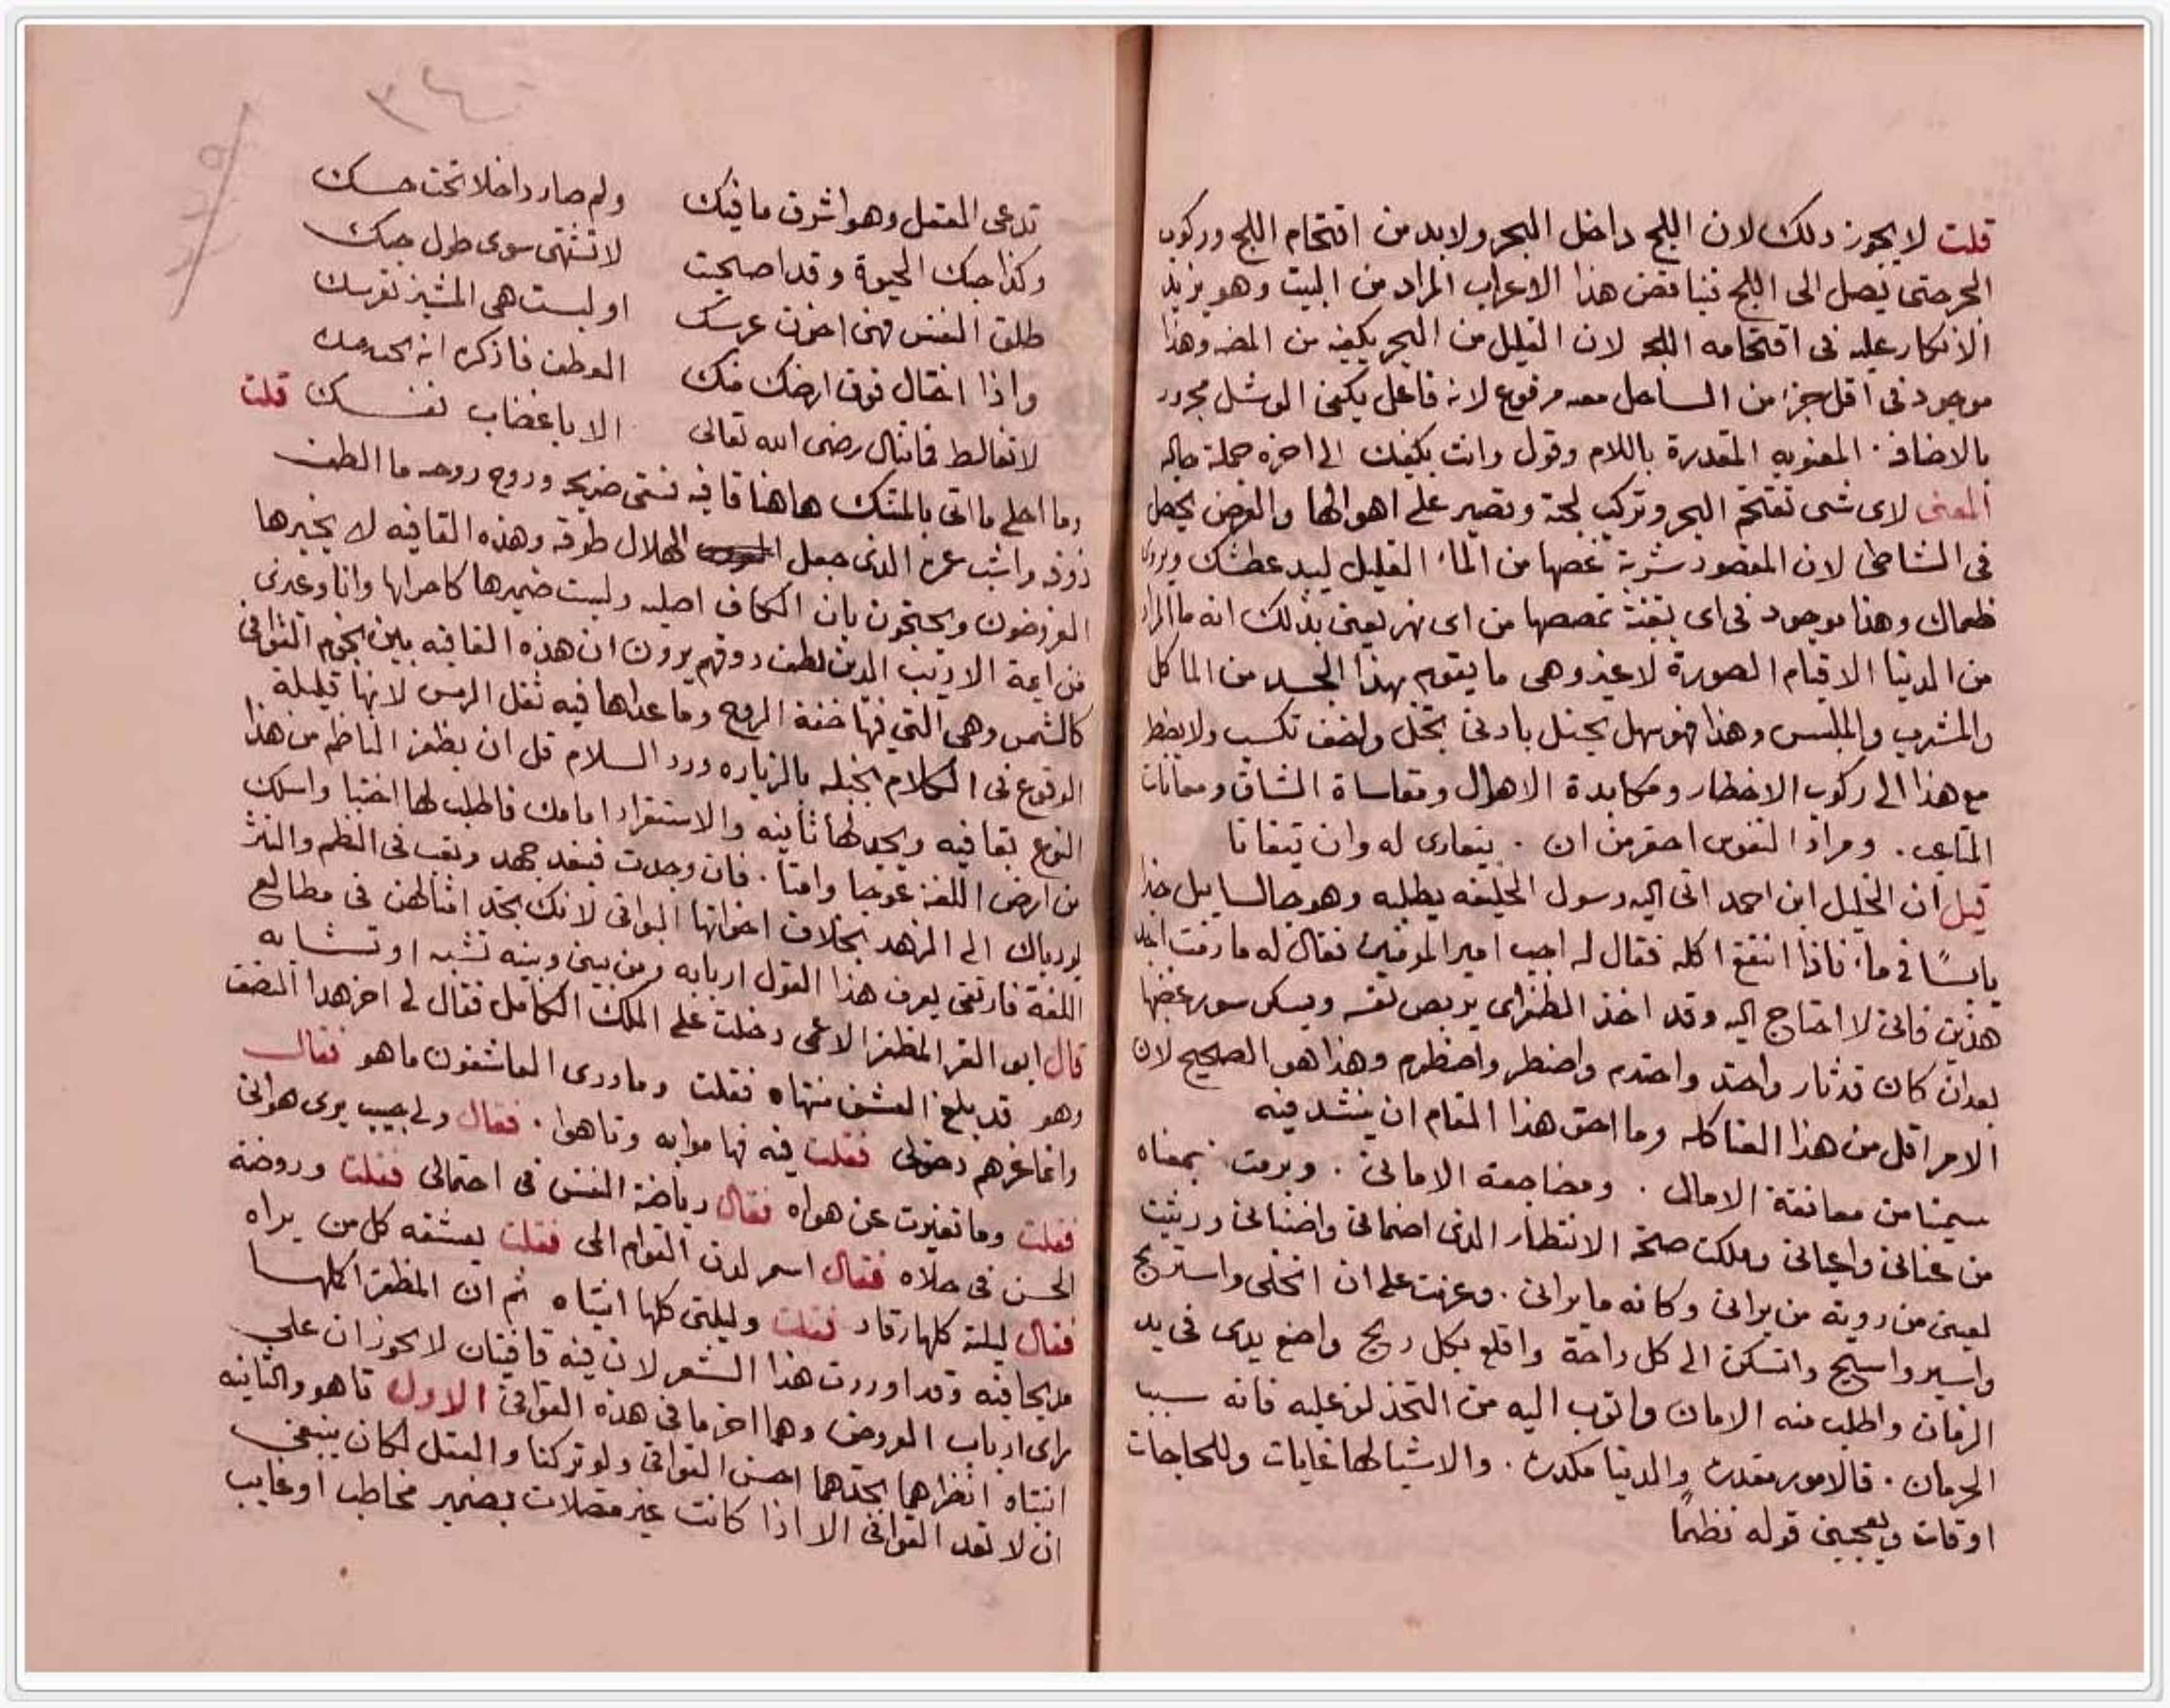 قلت لا يجوز ذلك لان اللج داخل البحر ولا بد من اقتحام اللج وركوب
البحر حتى يصل الى اللج فيناقض هذا الاعراب المراد من البيت وهو يريد
الانكار عليه فى اقتحامه اللج لان القليل من البحر يكفيه من المضه وهذا
موجود فى اقل جزء من الساحل مصه مرفوع لانه فاعل يكفى الوشل مجرور
بالاضافة المعنويه المقدرة باللام وقول وانت يكفيك الى اخره جملة حاله
المعنى لاى شى تقتحم البحر وتركب لجته وتصبر على اهوالها والغرض يحصل
فى الشاطى لان المقصود شربة تمصها من الماء القليل ليبد عطشك ويروى
ظماك وهذا موجود فى اى بقعة تمصها من اى نهر يعنى بذلك انه ما المراد
من الدنيا الا قيام الصورة لا غير وهى ما يقوم بهذا الجسد من الماكل
والمشرب والملبس وهذا فهو سهل يحصل بادنى تحمل واخف تكسب ولا يضطر
مع هذا الى ركوب الاخطار ومكابدة الاهوال ومقاساة المشاق ومعانات
المتاعب . ومراد النفوس احقر من ان . يتعادى له وان يتفانا
قيل ان الخليل ابن احمد اتى اليه رسول الخليفه يطلبه وهو جالس يبل خبزا
يابسًا فى ماء فاذا انتقع اكله فقال له اجب امير المومنين فقال له ما دمت اجد
هذين فانى لا احتاج اليه وقد اخذ الطغراى يربص نفسه ويسكن سورة غضبها
بعدان كان قد ثار واحتد واحتدم واضطر واضطرم وهذا هو الصحيح لان
الامر اقل من هذا العنا كله وما احق هذا المقام ان ينشد فيه
سيمنا من معانقة الامال . ومضاجعة الامانى . وبرمت بمعناه
من عنانى واعيانى وملكت صحة الانتظار الذى اضمانى واضنانى ورثيت
لعينى من روية من يرانى وكانه ما يرانى . وعزمت على ان اتخلى واستريح
واسير واسيح واتسكن الى كل راحة واقلع بكل ريح واضع يدى فى يد
الزمان واطلب منه الامان واتوب اليه من التحذلق عليه فانه سبب
الحرمان . فالامور مقدرة والدنيا مكدرة . والاشيا لها غايات وللحاجات
اوقات ويعجبنى قوله نظمًا
تدعى العقل وهو اشرف ما فيك ولم صار داخلا تحت حسك
وكذا حبك الحيوة وقد اصبحت لا تشتهى سوى طول حبك
طلق النفس فهى اخون عرسك اوليست هى المشير بعرسك
واذا اختال فوق ارضك منك العطف فاذكر انه تحت
لا تغالط فما تنال رضى الله تعالى الا باغضاب نفسك قلت
وما احلى ما اتى بالمتك هاهنا قافيه فسقى ضريحه وروح روحه ما الطف
ذوقه واثبت عزه الذى جعل الهلال طوقه وهذه القافيه لا يجيزها
العروضيون ويحتجون بان الكاف اصليه وليست ضميرها كاخواتها وانا وغيرى
من ايمة الادب الذين لطف ذوقهم يرون ان هذه القافيه بين نجوم القوافى
كالشمس وهى التى فيها خفة الروح وما عداها فيه ثقل الرمس لانها قليلة
الوقوع فى الكلام بخيله بالزياره ورد السلام قل ان يظفر الناظم من هذا
النوع بقافيه ويجد لها ثانيه والاستقراء امامك فاطلب لها اختبا واسلك
من ارض اللغة عوجا وامتا . فان وجدت فبعد جهد وتعب فى النظم والنثر
يورداك الى الزهد بخلاف اخواتها البواقى لانك تجد امثالهن فى مطالع
اللغة فارتقى يعرف هذا القول اربابه ومن بينى وبينه تشبه او تشابه
قال ابو العز المظفر الاعمى دخلت على الملك الكامل فقال لى اجز هذا النصف
وهو قد بلغ العشق منتهاه فقلت وما درى العاشقون ما هو فقال
وانما غرهم دخولى فقلت فيه فهاموا به وتاهوا . فقال ولى حبيب يرى هوانى
فقلت وما تغيرت عن هواه فقال رياضة النفس فى احتمالى فقلت وروضة
الحسن فى حلاه فقال اسمر لدن القوام المى فقلت يعشقه كل من يراه
فقال ليلة كلها رقاد فقلت وليلتى كلها انتباه ثم ان المظفر اكملها
مديحا فيه وقد اوردت هذا الشعر لان فيه قافيتان لا يجوزان على
راى ارباب العروض وهما اخر ما فى هذه القوافى الاول تاهو والثانيه
انتباه انظرهما تجدهما احسن القوافى ولو تركنا والعقل لكان ينبغى
ان لا تعد القوافى الا اذا كانت غير متصلات بضمير مخاطب او غايب